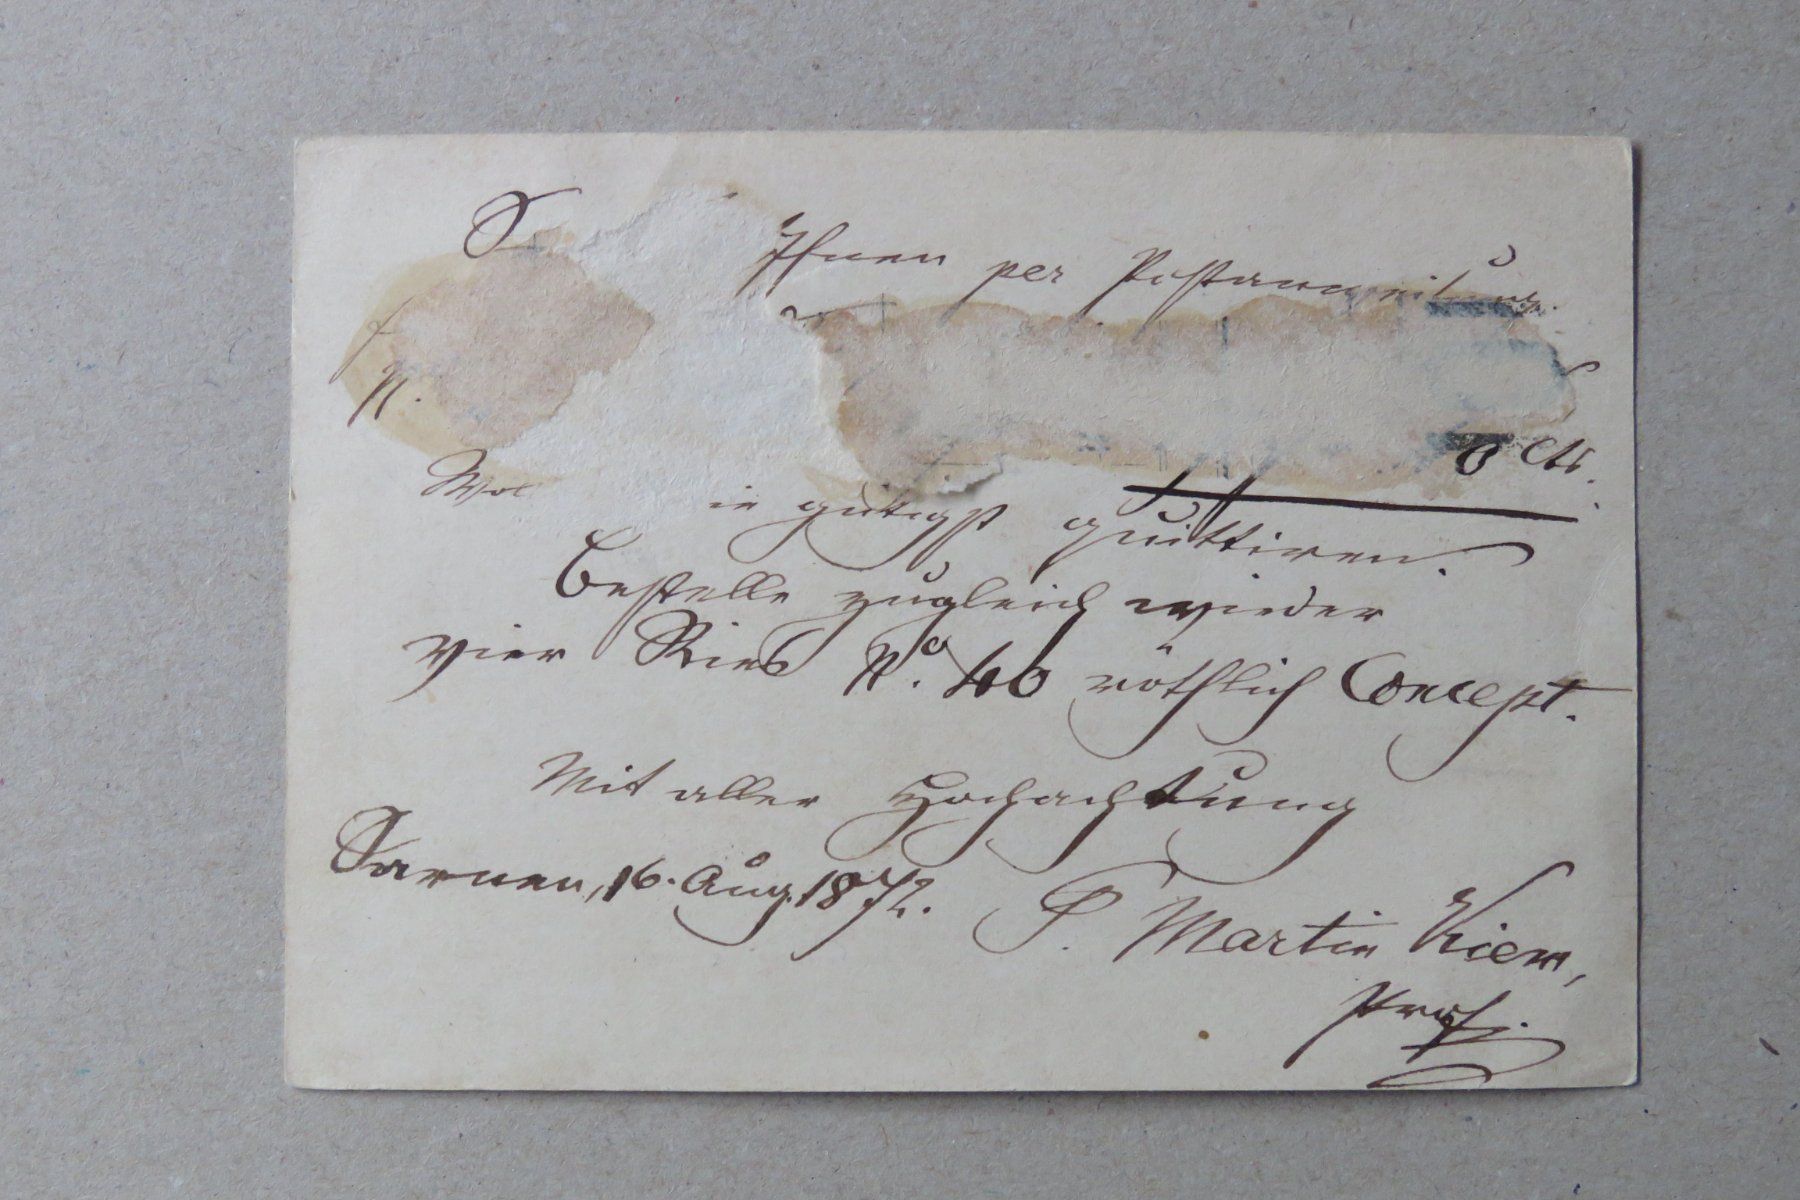 S
Ihnen per Postanweisung.
N.
0 Cts.
Wol ie gütigst quittiren.
Bestelle zugleich wieder
vier Ries No. 40 röthlich Concept.
Mit aller Hochachtung
Sarnen, 16. Aug. 1872. P. Martin Kiem,
Prof.